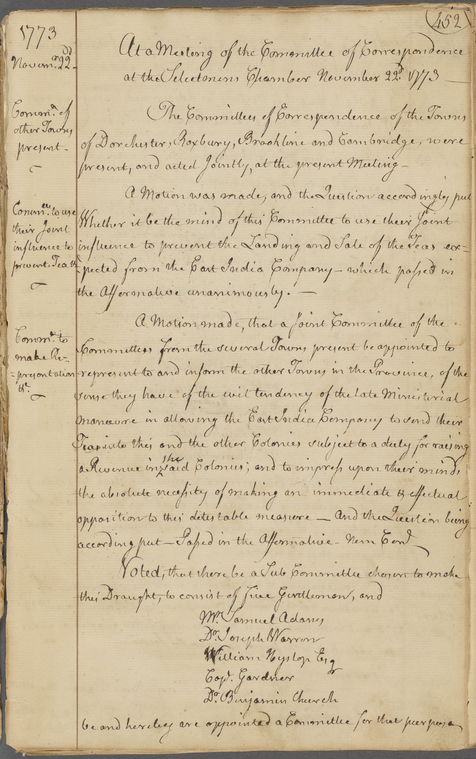 452
1773
Novem. 22d
At a Meeting of the Committee of Correspondence
at the Selectmens Chamber November 22d. 1773 —
Commee. of
other Towns
present —
The Committees of Correspondence of the Towns
of Dorchester, Roxbury, Brookline and Cambridge, were
present, and acted Jointly, at the present Meeting —
Commee. to use
their Joint
influence to
prevent Tea &c
A Motion was made, and the Question accordingly put
Whether it be the mind of this Committee to use their Joint
influence to prevent the Landing and Sale of the Teas ex=
=pected from the East India Company — which passed in
the Affermative unanimously. —
Commee. to
make Re-
=presentation
&c
A Motion made, that a Joint Committee of the
Committees from the several Towns present be appointed to
represent to and inform the other Towns in the Province, of the
sense they have of the evil tendency of the late Ministerial
manuvre in allowing the East India Company to send their
Teas into this and the other Colonies subject to a duty for raising
a Revenue in the said Colonies; and to impress upon their minds
the absolute necessity of making an immediate & effectual
opposition to this detestable measure — And the Question being
according put — Passed in the Affermative — Nem Cond
Voted, that there be a Sub Committee chosen to make
this Draught, to consist of five Gentlemen, and
Mr. Samuel Adams
Dr. Joseph Warren
William Hyslop Esq
Capt. Gardner
Dr. Benjamin Church
be and hereby are appointed a Committee for that purpose